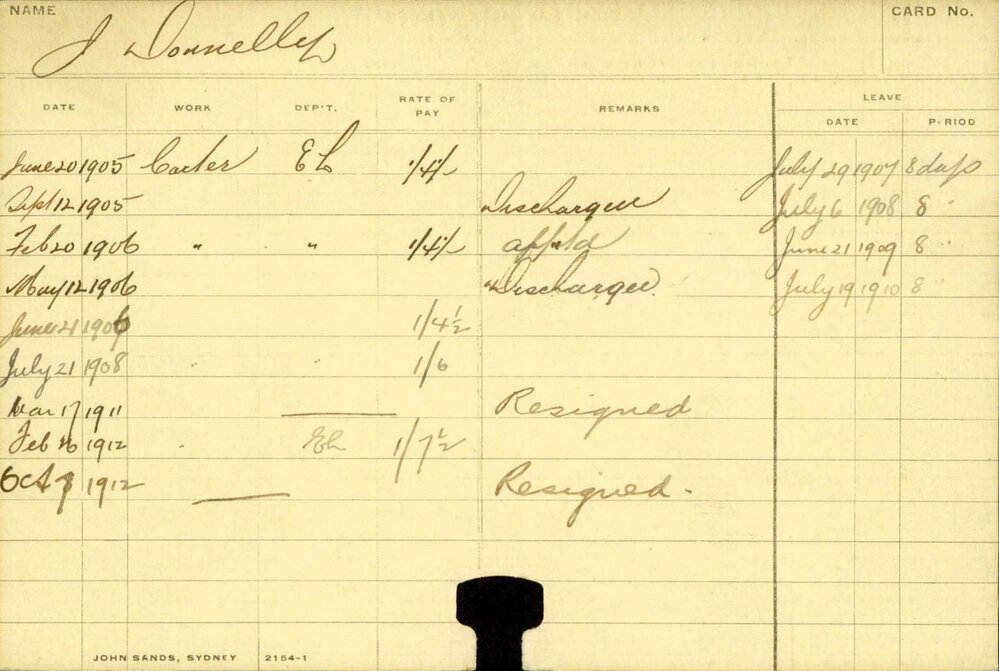 NAME
CARD No.
J Donnelly
LEAVE
DATE WORK DEP'T. RATE OF PAY REMARKS DATE PERIOD
June 20 1905 Carter EL 1/4/- July 29 1907 8 days
Sept 12 1905 Discharged July 6 1908 8 "
Feb 20 1906 " " 1/4/- app'td June 21 1909 8 "
May 12 1906 Discharged. July 19 1910 8 "
June 21 1906 1/4½
July 21 1908 " " 1/6
Mar 17 1911 Resigned
Feb 26 1912 " EL 1/7½
Oct 1912 Resigned.
JOHN SANDS, SYDNEY 2154-1